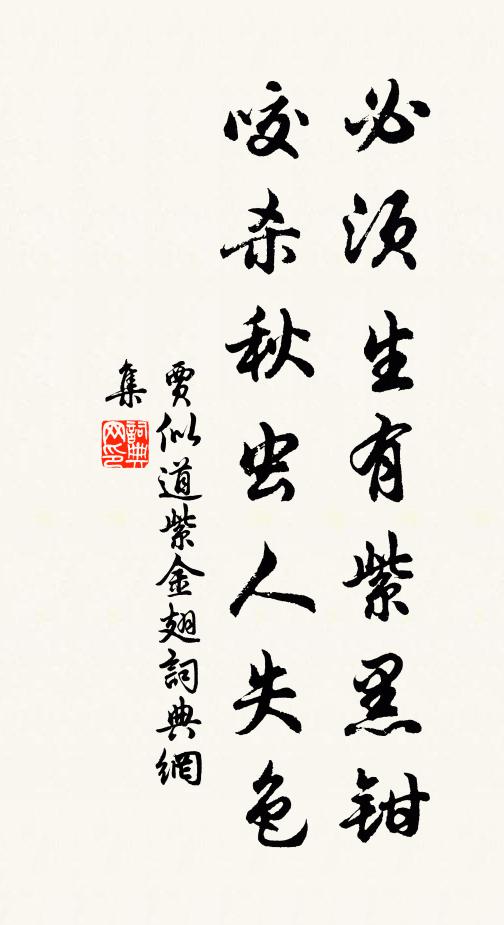 必须生有紫黑钳
咬杀秋虫人失色
賈似道紫金翅詞典網
集
詞典
网印